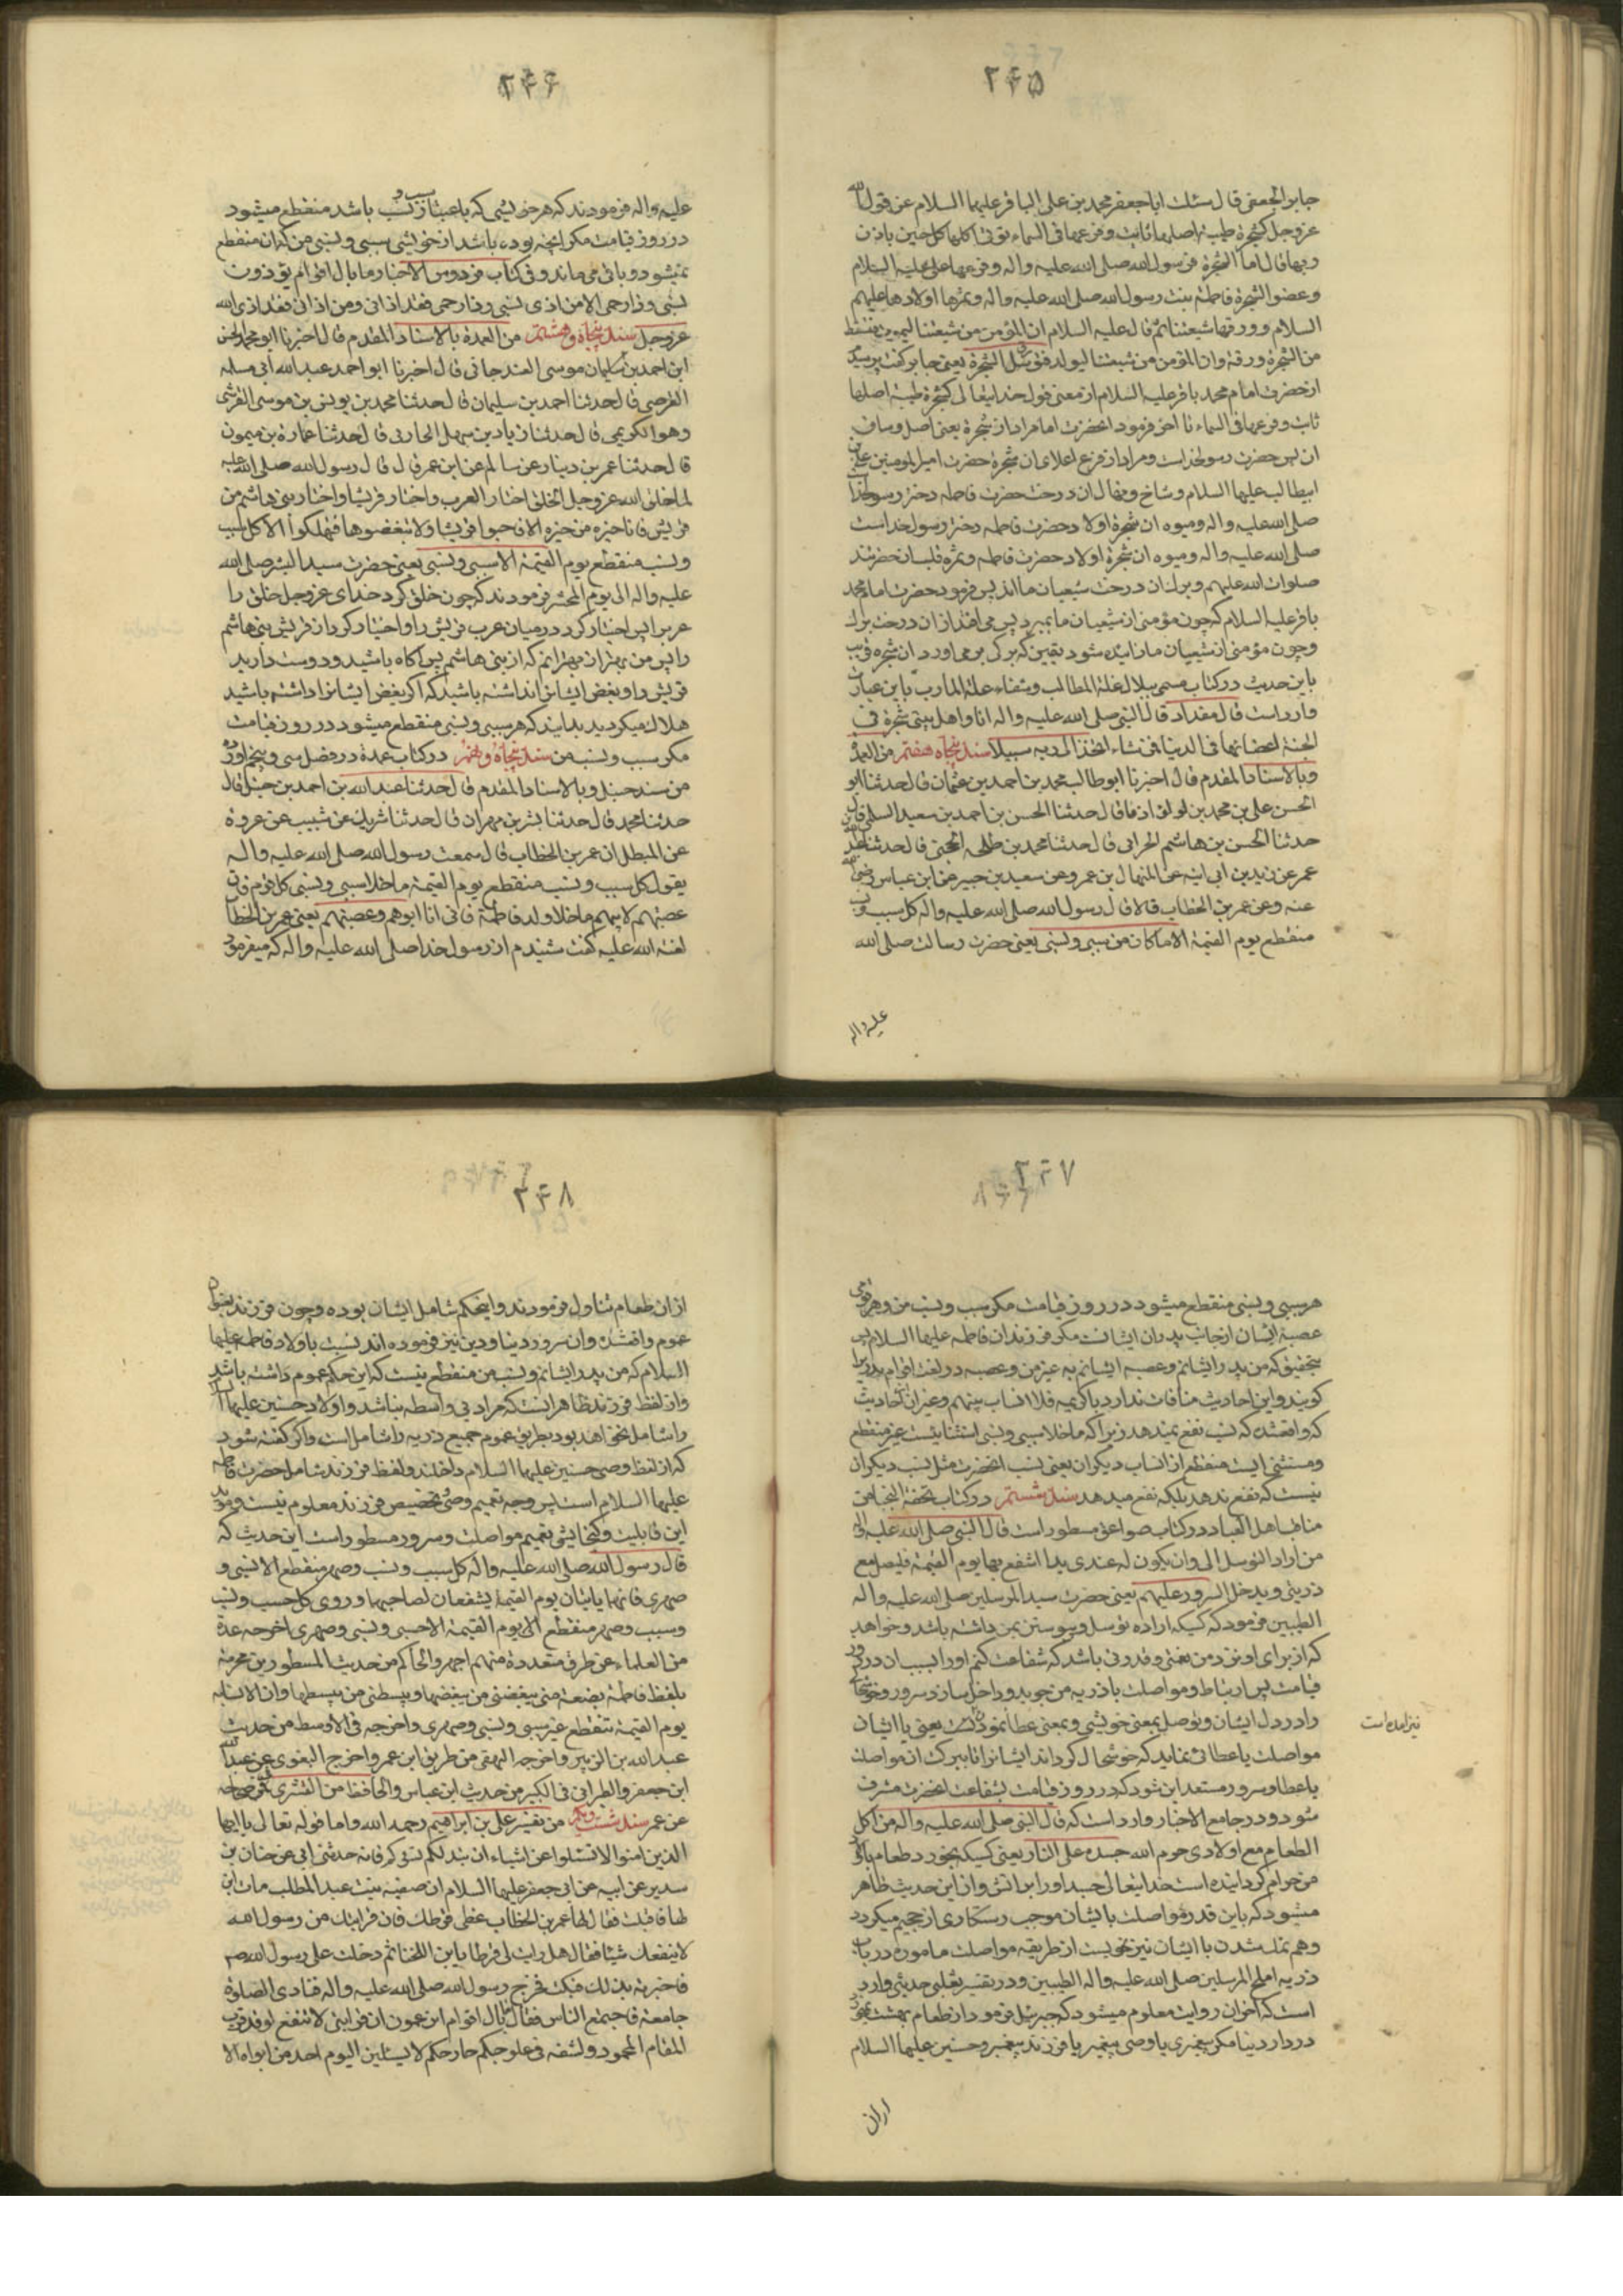 ۲۴۵
جابر الجعفی قال سئلت اباجعفر محمد بن علی الباقر علیهما السلام عن قول الله
عز وجل کشجرة طیبة اصلها ثابت و فرعها فی السماء تؤتی اکلها کل حین باذن
ربها قال اما الشجرة فرسول الله صلی الله علیه واله وفرعها علی علیه السلام
وغصن الشجرة فاطمة بنت رسول الله صلی الله علیه واله وثمرها اولادها علیهم
السلام وورقها شیعتنا ثم قال علیه السلام ان المؤمن من شیعتنا لیموت فتسقط
من الشجرة ورقة وان المؤمن من شیعتنا لیولد فتورق الشجرة یعنی جابر کفت پرسید
از حضرت امام محمد باقر علیه السلام از معنی قول خدایتعالی کشجرة طیبة اصلها
ثابت وفرعها فی السماء تا اخر فرمود انحضرت امام مراد از شجرة یعنی اصل وساق
ان پس حضرت رسولخداست ومراد از فرع اعلای ان شجرة حضرت امیرالمومنین علی بن
ابیطالب علیهما السلام وشاخ ونهال ان درخت حضرت فاطمه دختر رسولخدا
صلی الله علیه واله ومیوه ان شجرة اولاد حضرت فاطمه دختر رسول خداست
صلی الله علیه واله ومیوه ان شجرة اولاد حضرت فاطمه وثمره قلب ان حضرتند
صلوات الله علیهم وبرک ان درخت شیعیان ما اند پس فرمود حضرت امام محمد
باقر علیه السلام که چون مؤمنی از شیعیان ما بمیرد پس می افتد از ان درخت برک
وچون مؤمنی از شیعیان ما زائیده شود یقین که برکی بر می اورد ان شجره قریب
باین حدیث در کتاب مسمی ببلال غلة المطالب وشفاء علة المارب باین عبارت
وارد است قال مقداد قال النبی صلی الله علیه واله انا واهل بیتی شجرة فی
الجنة اغصانها فی الدنیا فمن شاء اتخذ الی ربه سبیلا سند پنجاه وهفتم من العمدة
وبالاسناد المقدم قال اخبرنا ابوطالب محمد بن احمد بن عثمان قال حدثنا ابو
الحسن علی بن محمد بن لؤلؤ اذنا قال حدثنا الحسن بن احمد بن سعید السلمی قال
حدثنا الحسن بن هاشم الحرانی قال حدثنا محمد بن طلحه الحجبی قال حدثنا
عمر عن زید بن ابی انیسه عن المنهال بن عمرو عن سعید بن جبیر عن ابن عباس رضی الله
عنه وعن عمر بن الخطاب قالا قال رسول الله صلی الله علیه واله کل سبب ونسب
منقطع یوم القیمة الا ماکان من سببی ونسبی یعنی حضرت رسالت صلی الله
علیه واله
۲۴۶
علیه واله فرمودند که هر خویشی که باعتبار سبب و نسب باشد منقطع میشود
در روز قیامت مکر انچه بوده باشد از خویشی سببی ونسبی من که ان منقطع
نمیشود وباقی می ماند وفی کتاب فردوس الاخبار ما بال اقوام یؤذون
نسبی وذا رحمی الا من اذی نسبی وذا رحمی فقد اذانی ومن اذانی فقد اذی الله
عز وجل سند پنجاه وهشتم من العمدة بالاسناد المقدم قال اخبرنا ابو محمد الحسن
ابن احمد بن سلیمان موسی الغندجانی قال اخبرنا ابو احمد عبد الله ابی مسلم
الفرضی قال حدثنا احمد بن سلیمان قال حدثنا محمد بن یونس بن موسی القرشی
وهو الکریمی قال حدثنا زیاد بن سهل الحارثی قال حدثنا عمارة بن میمون
قال حدثنا عمر بن دینار عن سالم عن ابن عمر قال قال رسول الله صلی الله علیه
لما خلق الله عز وجل الخلق اختار العرب واختار قریشا واختار بنی هاشم من
قریش فانا خیره من خیره الا فاحبوا قریشا ولا تبغضوها فتهلکوا الا کل سبب
ونسب منقطع یوم القیمة الا سببی ونسبی یعنی حضرت سید البشر صلی الله
علیه واله الی یوم المحشر فرمودند که چون خلق کرد خدای عز وجل خلق را
عرب را پس اختیار کرد در میان عرب قریش را واختیار کرد از قریش بنی هاشم
را پس من بهتر از بهترانم که از بنی هاشم پس اکاه باشید ودوست دارید
قریش را وبغض ایشانرا نداشته باشید که اکر بغض ایشانرا داشته باشید
هلاک میکردید بدانید که هر سببی ونسبی منقطع میشود در روز قیامت
مکر سبب ونسب من سند پنجاه ونهم در کتاب عمدة در فصل سی وپنجم اورده
من مسند حنبل وبالاسناد المقدم قال حدثنا عبد الله بن احمد بن حنبل قال
حدثنا محمد قال حدثنا بشر بن مهران قال حدثنا شریک عن شبیب عن عروة
عن المبطل ان عمر بن الخطاب قال سمعت رسول الله صلی الله علیه واله
یقول کل سبب ونسب منقطع یوم القیمة ماخلا سببی ونسبی کل قوم فان
عصبتهم لابیهم ماخلا ولد فاطمة فانی انا ابوهم وعصبتهم یعنی عمر بن الخطاب
لعنة الله علیه کفت شنیدم از رسول خدا صلی الله علیه واله که میفرمود
۲۴۷
هر سببی ونسبی منقطع میشود در روز قیامت مکر سبب ونسب من وهر قومی
عصبة ایشان از جانب پدران ایشانست مکر فرزندان فاطمه علیها السلام پس
بتحقیق که من پدر ایشانم وعصبه ایشانم به غیر من وعصبه در لغت اقوام پدریرا
کویند واین احادیث منافات ندارد با کریمه فلا انساب بینهم وغیر ان احادیث
که واقعشده که نسب نفع نمیدهد زیرا که ماخلا سببی ونسبی استثنائیست غیر منقطع
ومستثنی است منقطع از انساب دیکران یعنی نسب انحضرت مثل نسب دیکران
نیست که نفع ندهد بلکه نفع میدهد سند شصتم در کتاب تحفة النجبا من
مناقب اهل العبا در کتاب صواعق مسطور است قال النبی صلی الله علیه واله
من اراد التوسل الی وان یکون له عندی یدا اشفع بها یوم القیمة فلیصل مع
ذریتی ویدخل السرور علیهم یعنی حضرت سید المرسلین صلی الله علیه واله
الطیبین فرمود که کسیکه اراده توسل وپیوستن بمن داشته باشد وخواهد
که از برای او نزد من نعمتی وقدرتی باشد که شفاعت کنم اورا بسبب ان در روز
قیامت پس ارتباط ومواصلت با ذریه من جوید وداخل سازد سرور وخوشحالی
را در دل ایشان وتوصل بمعنی خویشی وبمعنی عطا نمودنست یعنی با ایشان
مواصلت یا عطائی نماید که خوشحال کرداند ایشانرا تا ببرکت ان مواصلت
یا عطا وسرور مستعد این شود که در روز قیامت بشفاعت انحضرت مشرف
شود ودر جامع الاخبار وارد است که قال النبی صلی الله علیه واله من اکل
الطعام مع اولادی حرم الله جسده علی النار یعنی کسیکه بخورد طعام با اولاد
من حرام کردانیده است خدایتعالی جسد اورا بر اتش واز این حدیث ظاهر
میشود که باین قدر مواصلت با ایشان موجب رستکاری از جحیم میکردد
وهم نمک شدن با ایشان نیز نحویست از طریقه مواصلت مامورة در باب
ذریه املح المرسلین صلی الله علیه واله الطیبین ودر تفسیر ثعلبی حدیثی وارد
است که اخوان روایت معلوم میشود که جبرئیل فرمود از طعام بهشت نمیخورد
در دار دنیا مکر پیغمبری یا وصی پیغمبر یا فرزند پیغمبر وحسنین علیهما السلام
نیز امده است
از ان
۲۴۸
از ان طعام تناول فرمودند واینحکم شامل ایشان بوده وچون فرزند بعنوان
عموم واقعشده وان سرور دنیا ودین نیز فرموده اند نسبت باولاد فاطمه علیها
السلام که من پدر ایشانم ونسب من منقطع نیست که این حکم عموم داشته باشد
واز لفظ فرزند ظاهر انست که مراد بی واسطه نباشد واولاد حسنین علیهما السلام
را شامل نخواهد بود بطریق عموم جمیع ذریه را شامل است واکر کفته شود
که از لفظ وصی حسنین علیهما السلام داخلند ولفظ فرزند شامل حضرت فاطمه
علیها السلام است پس وجه تعمیم وصی وتخصیص فرزند معلوم نیست ومؤید
این قابلیت وکنجایشی تعمیم مواصلت وسرور مسطور است این حدیث که
قال رسول الله صلی الله علیه واله کل سبب ونسب وصهر منقطع الا نسبی و
صهری فانهما یاتیان یوم القیمة یشفعان لصاحبهما وروی کل حسب ونسب
وسبب وصهر منقطع الی یوم القیمة الا حسبی ونسبی وصهری اخرجه عدة
من العلماء عن طرق متعددة منهم احمد والحاکم من حدیث المسطور بن مخرمة
بلفظ فاطمة بضعة منی یبغضنی من یبغضها ویبسطنی من یبسطها وان الانساب
یوم القیمة تنقطع غیر سببی ونسبی وصهری واخرجه فی الاوسط من حدیث
عبد الله بن الزبیر واخرجه البیهقی من طریق ابن عمر واخرج البغوی عن عبد الله
ابن جعفر والطبرانی فی الکبیر من حدیث ابن عباس والحافظ من
عن عمر سند شصت ویکم من تفسیر علی بن ابراهیم رحمه الله واما قوله تعالی یا ایها
الذین امنوا لا تسئلوا عن اشیاء ان تبد لکم تسؤکم فانه حدثنی ابی عن حنان بن
سدیر عن ابیه عن ابی جعفر علیهما السلام ان صفیه بنت عبد المطلب مات ابن
لها فاقبلت فقال لها عمر بن الخطاب غطی قرطک فان قرابتک من رسول الله
لا ینفعک شیئا فقال هل رایت لی قرطا یا بن اللخنا ثم دخلت علی رسول الله ص
فاخبرته بذلک فبکت فخرج رسول الله صلی الله علیه واله فنادی الصلوة
جامعة فاجتمع الناس فقال ما بال اقوام یزعمون ان قرابتی لا تنفع لو قد قربت
المقام المحمود ولشفعت فی علوجکم حارحکم لا یسئلنی الیوم احد من ابواه الا